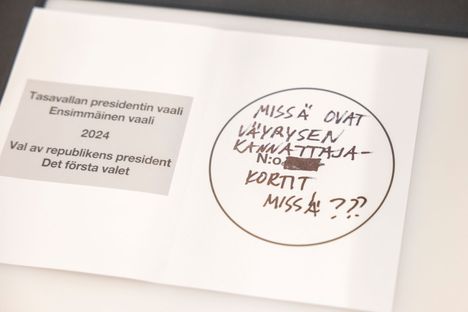 Tasavallan presidentin vaali
Ensimmäinen vaali
2024
Val av republikens president
Det första valet
MISSÄ OVAT
VÄYRYSEN
KANNATTAJA-
N:o
KORTIT
MISSÄ???